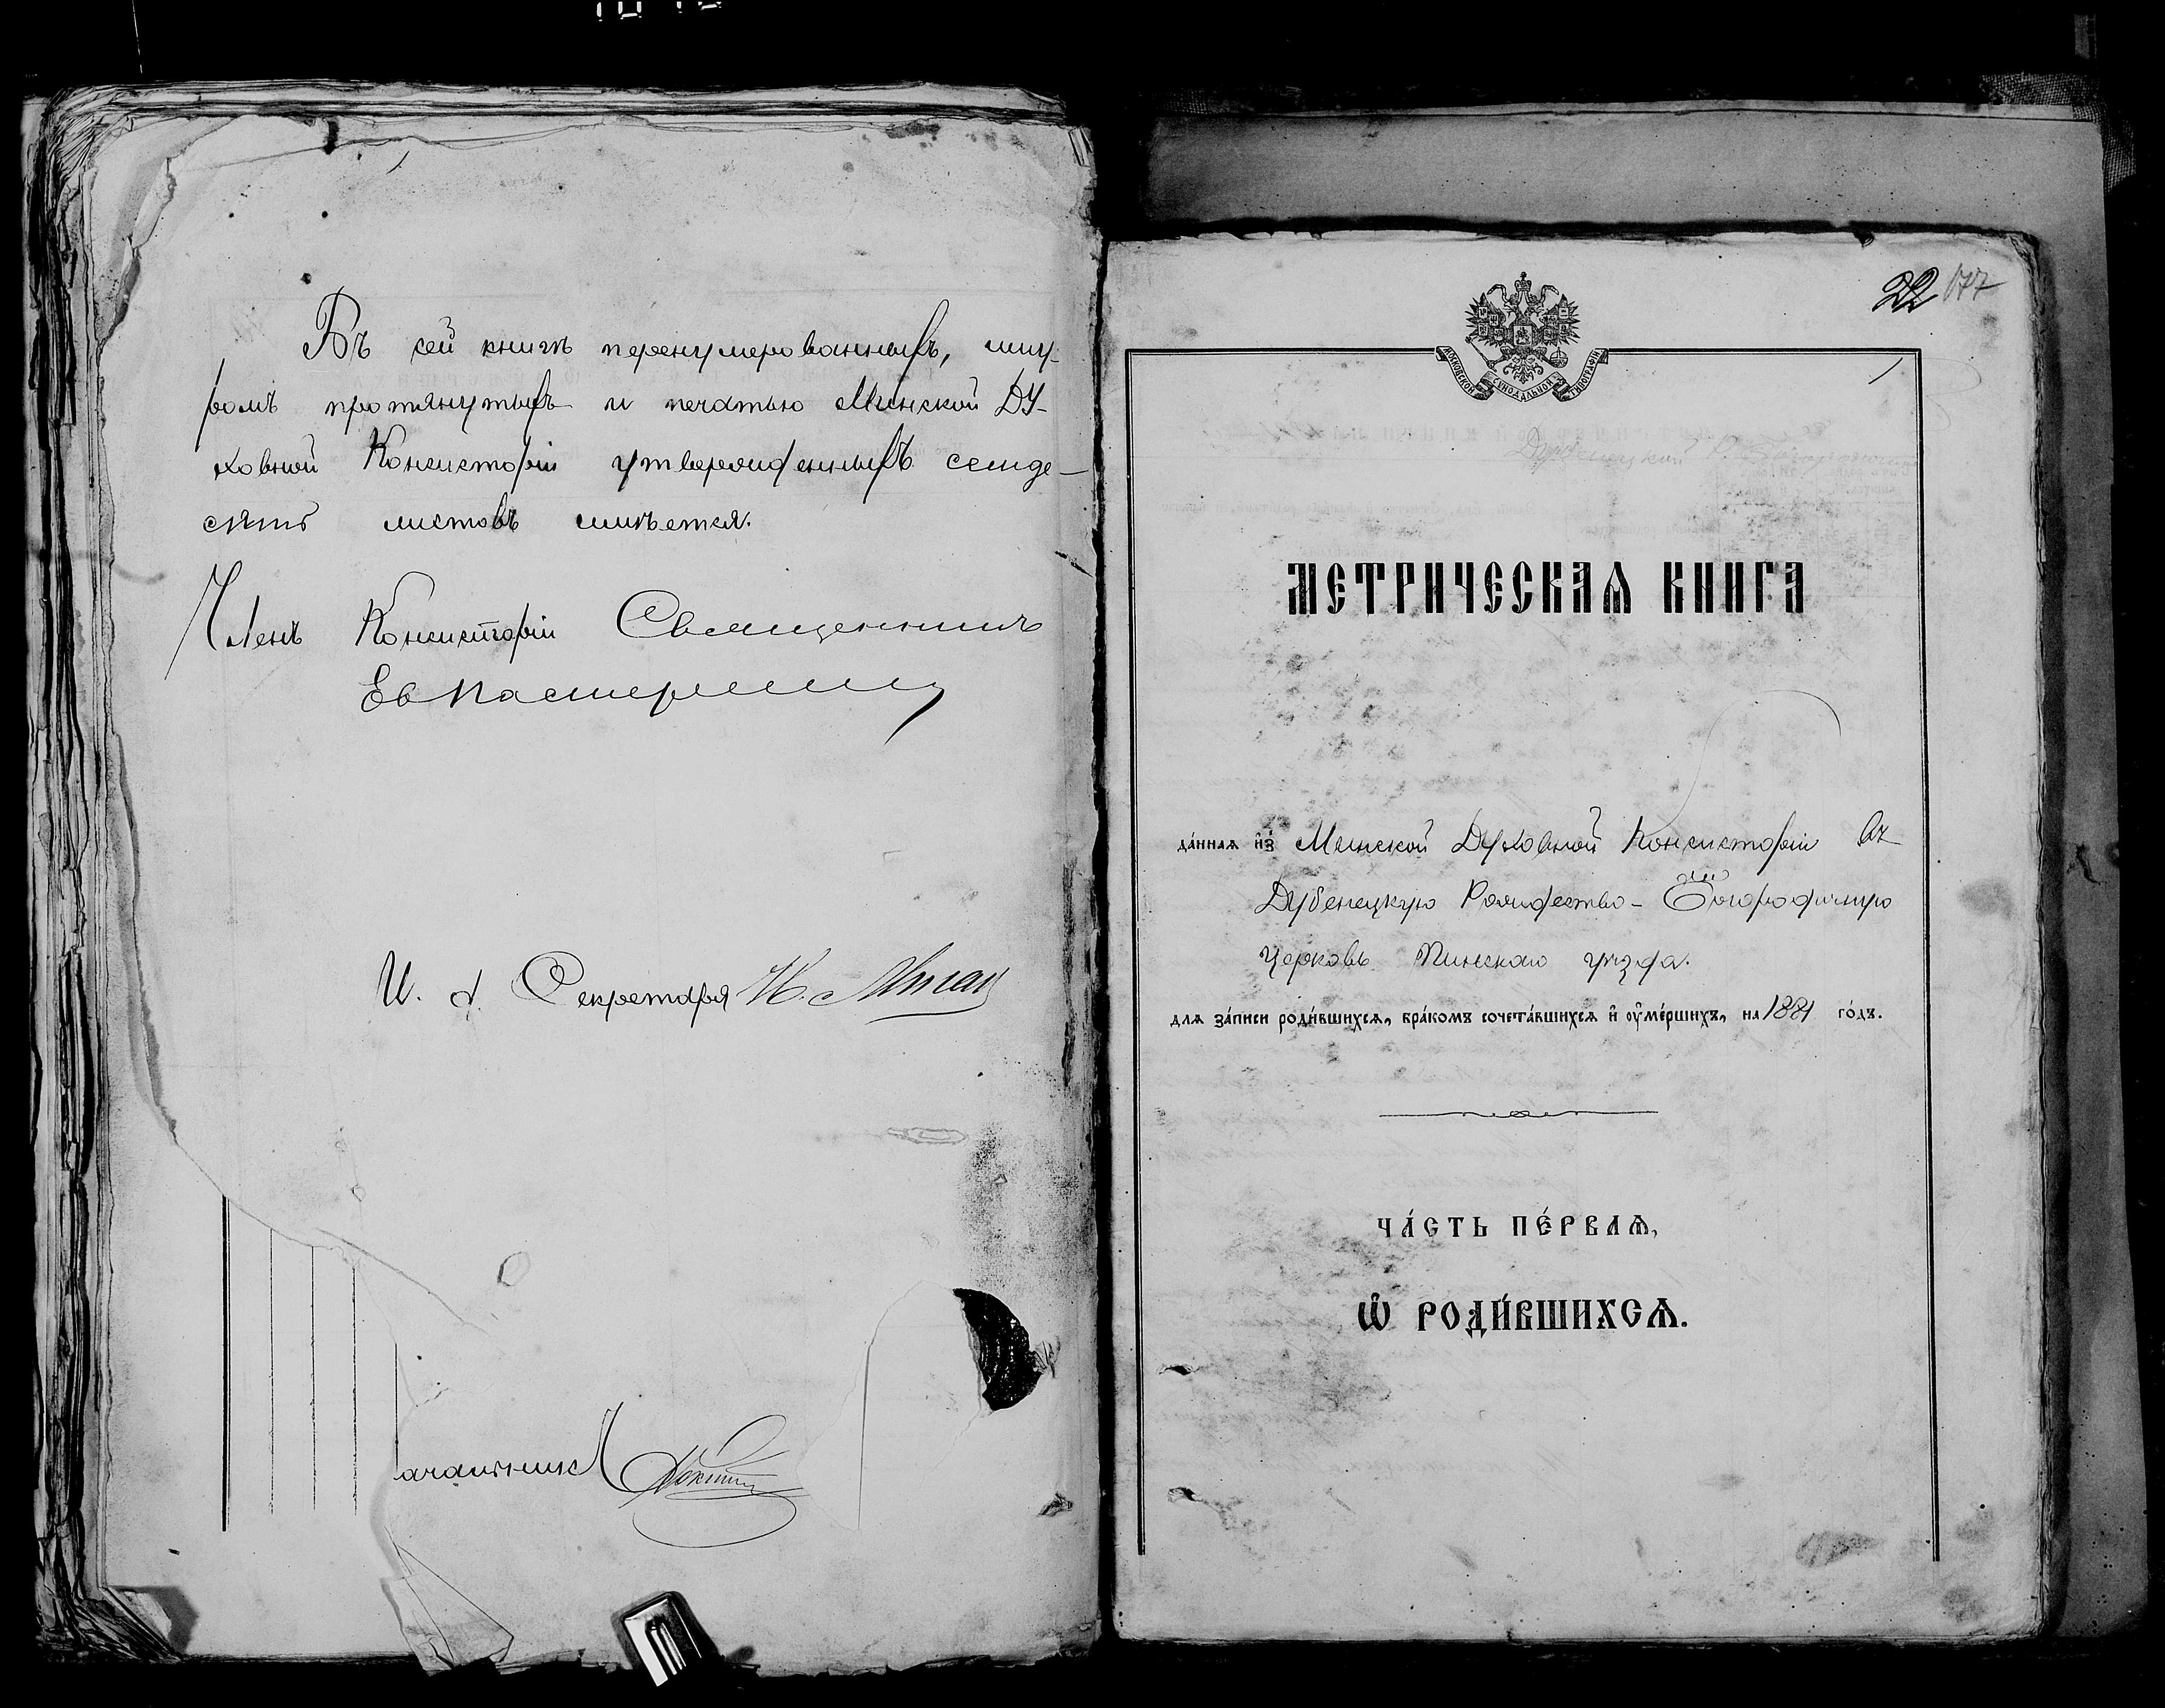 Въ сей книгѣ перенумерованныхъ, шну-
ромъ протянутыхъ и печатью Минской Ду-
ховной Консисторіи утвержденныхъ семьде-
сятъ листовъ имѣется.
Членъ Консисторіи Священникъ
И. д. Секретаря Н.
22 177
1
МОСКОВСКОЙ СѴНОДАЛЬНОЙ ТИПОГРАФІИ
МЕТРИЧЕСКАѦ КНИГА
да́ннаѧ и҆з̾ Минской Духовной Консисторіи въ
Дубенецкую Рождество-Богородичную
Церковь Пинскаго уѣзда.
длѧ за́писи роди́вшихсѧ, бра́комъ сочета́вшихсѧ и҆ ᲂу҆ме́ршихъ, на 1881 го́дъ.
ЧА́СТЬ ПЕ́РВАѦ,
Ѡ҆ РОДИ́ВШИХСѦ.